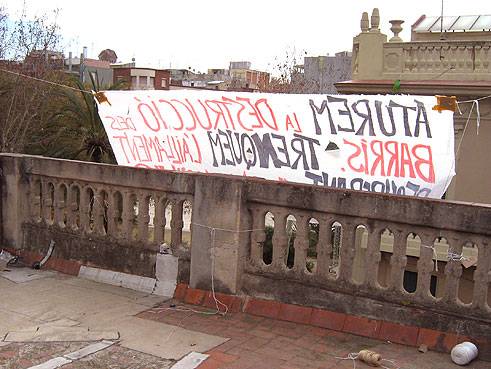 ATUREM LA DESTRUCCIÓ DES
BARRIS. TRENQUEM L'AILLAMENT